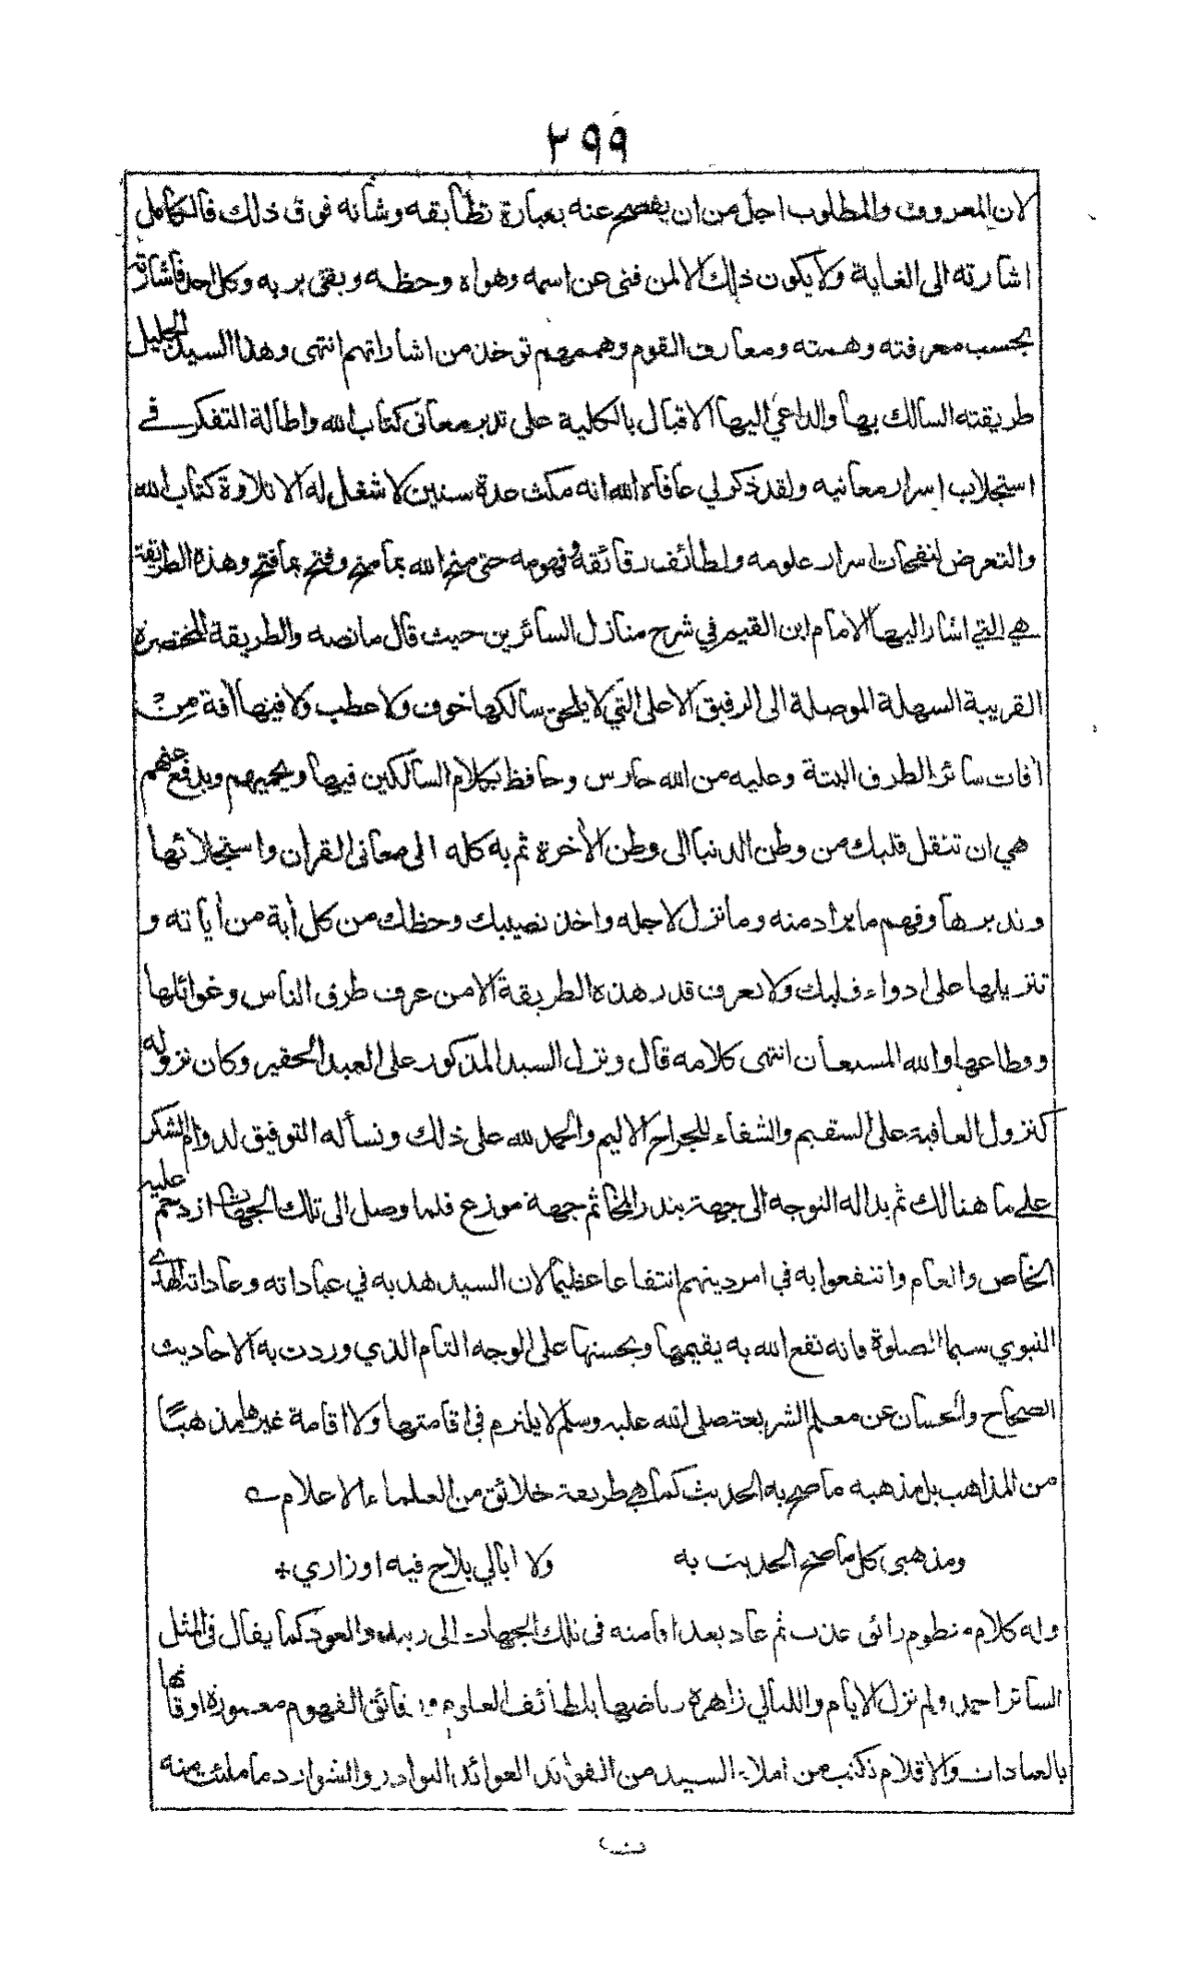 ٢٩٩
لان المعروف والمطلوب اجل من ان يفصح عنه بعبارة تطابقه وشانه فوق ذلك فالكامل
اشارته الى الغاية ولا يكون ذلك الا لمن فنى عن اسمه وهواه وحظه وبقى بربه وكل احد فاشارته
بحسب معرفته وهمته ومعارف القوم وهممهم توخذ من اشاراتهم انتهى وهذا السيد الجليل
طريقته السالك بها والداعي اليها الاقبال بالكلية على تدبر معانى كتاب الله واطالة التفكر في
استجلاب اسرار معانيه ولقد ذكر لي عافاه الله انه مكث عدة سنين لا شغل له الا تلاوة كتاب الله
والتعرض لنفحات اسرار علومه ولطائف رقائقه وفهومه حتى منح الله بما منح وفتح بما فتح وهذه الطريقة
هي التي اشار اليها الامام ابن القيم في شرح منازل السائرين حيث قال ما نصه والطريقة المختصرة
القريبة السهلة الموصلة الى الرفيق الاعلى التي لا يلحق سالكها خوف ولا عطب ولا فيها آفة من
آفات سائر الطرق البتة وعليه من الله حارس وحافظ يكلام السالكين فيها ويحميهم ويدفع عنهم
هي ان تنقل قلبك من وطن الدنيا الى وطن الأخرة ثم به كله الى معانى القرآن واستجلائها
وتدبرها وفهم ما يراد منه وما نزل لاجله واخذ نصيبك وحظك من كل أية من أياته و
تنزيلها على ادواء قلبك ولا يعرف قدر هذه الطريقة الا من عرف طرق الناس وغوائلها
وقطاعها والله المستعان انتهى كلامه قال ونزل السيد المذكور على العبد الحقير وكان نزوله
كنزول العافية على السقيم والشفاء للجراح الاليم والحمد لله على ذلك ونسأله التوفيق لدوام الشكر
على ما هنالك ثم بدا له التوجه الى جهة بندر المخا ثم جهة موزع فلما وصل الى تلك الجهات ازدحم عليه
الخاص والعام وانتفعوا به في امر دينهم انتفاعا عظيما لان السيد هديه في عباداته وعاداته الهدي
النبوي سيما الصلوة فانه نفع الله به يقيمها ويحسنها على الوجه التام الذي وردت به الاحاديث
الصحاح والحسان عن معلم الشريعة صلى الله عليه وسلم لا يلتزم في اقامتها ولا اقامة غيرها مذهبًا
من المذاهب بل مذهبه ما صح به الحديث كما هي طريقة خلائق من العلماء الاعلام
ومذهبي كل ما صح الحديث به ولا ابالي بلاح فيه او زاري
وله كلام منظوم رائق عذب ثم عاد بعد اقامته في تلك الجهات الى زبيد والعود كما يقال في المثل
السائر احمد ولم نزل الايام والليالي زاهرة رياضها بلطائف العلوم وفائق الفهوم معمورة اوقاتها
بالعبادات والاقلام تكتب من املاء السيد من الفوائد العوائد النوادر والشوارد ما ملئت منه